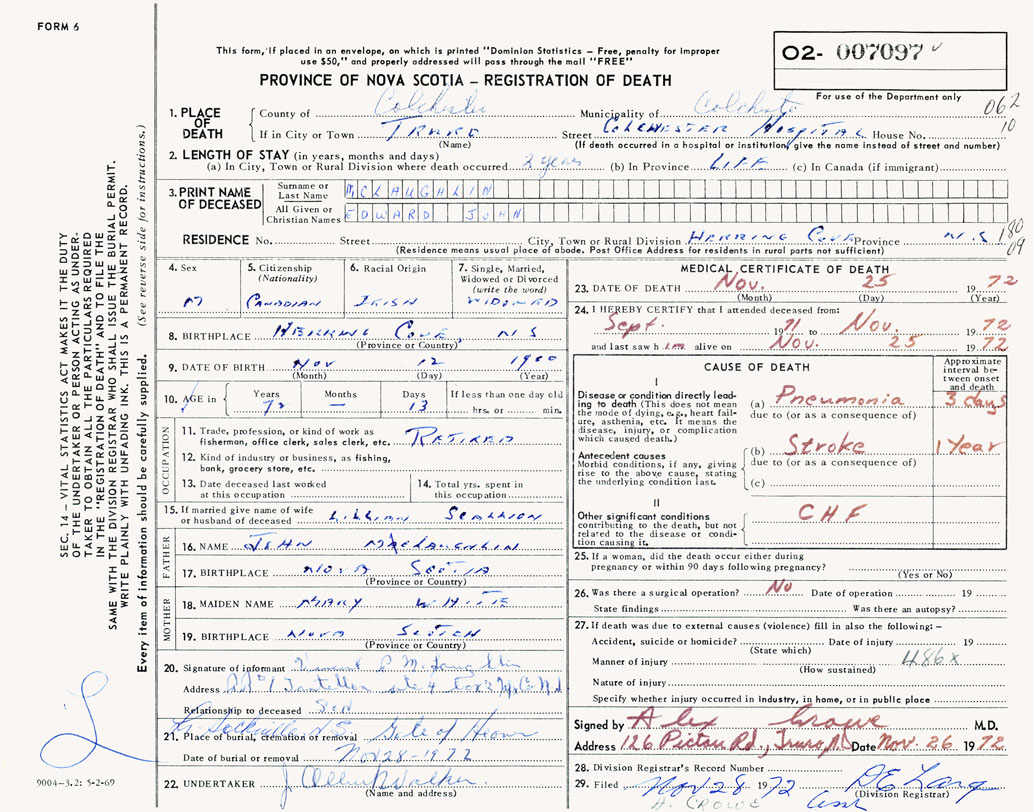 FORM 6
This form, if placed in an envelope, on which is printed "Dominion Statistics – Free, penalty for improper
use $50," and properly addressed will pass through the mail "FREE"
PROVINCE OF NOVA SCOTIA – REGISTRATION OF DEATH
02- 007097
For use of the Department only
062
10
1. PLACE OF DEATH
County of Colchester Municipality of Colchester
If in City or Town TRURO Street COLCHESTER HOSPITAL House No.
(Name) (If death occurred in a hospital or institution, give the name instead of street and number)
2. LENGTH OF STAY (in years, months and days)
(a) In City, Town or Rural Division where death occurred 2 years (b) In Province LIFE (c) In Canada (if immigrant)
3. PRINT NAME OF DECEASED
Surname or Last Name McLAUGHLIN
All Given or Christian Names EDWARD JOHN
RESIDENCE No. Street City, Town or Rural Division HERRING COVE Province N.S
180
09
(Residence means usual place of abode. Post Office Address for residents in rural parts not sufficient)
4. Sex M
5. Citizenship (Nationality) CANADIAN
6. Racial Origin IRISH
7. Single, Married, Widowed or Divorced (write the word) WIDOWED
8. BIRTHPLACE HERRING COVE, N S
(Province or Country)
9. DATE OF BIRTH NOV 12 1900
(Month) (Day) (Year)
10. AGE in Years 72 Months — Days 13 If less than one day old hrs. or min.
OCCUPATION
11. Trade, profession, or kind of work as fisherman, office clerk, sales clerk, etc. RETIRED
12. Kind of industry or business, as fishing, bank, grocery store, etc.
13. Date deceased last worked at this occupation
14. Total yrs. spent in this occupation
15. If married give name of wife or husband of deceased LILLIAN SCALLION
FATHER
16. NAME JOHN McLAUGHLIN
17. BIRTHPLACE NOVA SCOTIA
(Province or Country)
MOTHER
18. MAIDEN NAME MARY WHITE
19. BIRTHPLACE NOVA SCOTIA
(Province or Country)
20. Signature of informant Vincent P McLaughlin
Address RR #1 Tantallon site 4 Box
Relationship to deceased SON
Lr. Sackville N.S. Gate of Heaven
21. Place of burial, cremation or removal
Date of burial or removal Nov 28-1972
22. UNDERTAKER J Allen Walker
(Name and address)
MEDICAL CERTIFICATE OF DEATH
23. DATE OF DEATH Nov. 25 1972
(Month) (Day) (Year)
24. I HEREBY CERTIFY that I attended deceased from:
Sept. 1971 to Nov. 1972
and last saw him alive on Nov. 25 1972
CAUSE OF DEATH
Approximate interval between onset and death
I
Disease or condition directly leading to death (This does not mean the mode of dying, e.g., heart failure, asthenia, etc. It means the disease, injury, or complication which caused death.)
(a) Pneumonia 3 days
due to (or as a consequence of)
Antecedent causes
Morbid conditions, if any, giving rise to the above cause, stating the underlying condition last.
(b) Stroke 1 Year
due to (or as a consequence of)
(c)
II
Other significant conditions contributing to the death, but not related to the disease or condition causing it.
CHF
25. If a woman, did the death occur either during pregnancy or within 90 days following pregnancy?
(Yes or No)
26. Was there a surgical operation? No Date of operation 19
State findings Was there an autopsy?
27. If death was due to external causes (violence) fill in also the following: –
Accident, suicide or homicide? Date of injury 19
(State which)
Manner of injury 486x
(How sustained)
Nature of injury
Specify whether injury occurred in industry, in home, or in public place
Signed by Alex Crowe M.D.
Address 126 Pictou Rd., Truro, N.S Date Nov. 26 1972
28. Division Registrar's Record Number
29. Filed Nov 28 1972
(Division Registrar)
A. CROWE
SEC. 14 – VITAL STATISTICS ACT MAKES IT THE DUTY
OF THE UNDERTAKER OR PERSON ACTING AS UNDER-
TAKER TO OBTAIN ALL THE PARTICULARS REQUIRED
IN THE "REGISTRATION OF DEATH" AND TO FILE THE
SAME WITH THE DIVISION REGISTRAR WHO SHALL ISSUE THE BURIAL PERMIT.
WRITE PLAINLY WITH UNFADING INK. THIS IS A PERMANENT RECORD.
Every item of information should be carefully supplied. (See reverse side for instructions.)
9004-3.2: 5-2-69